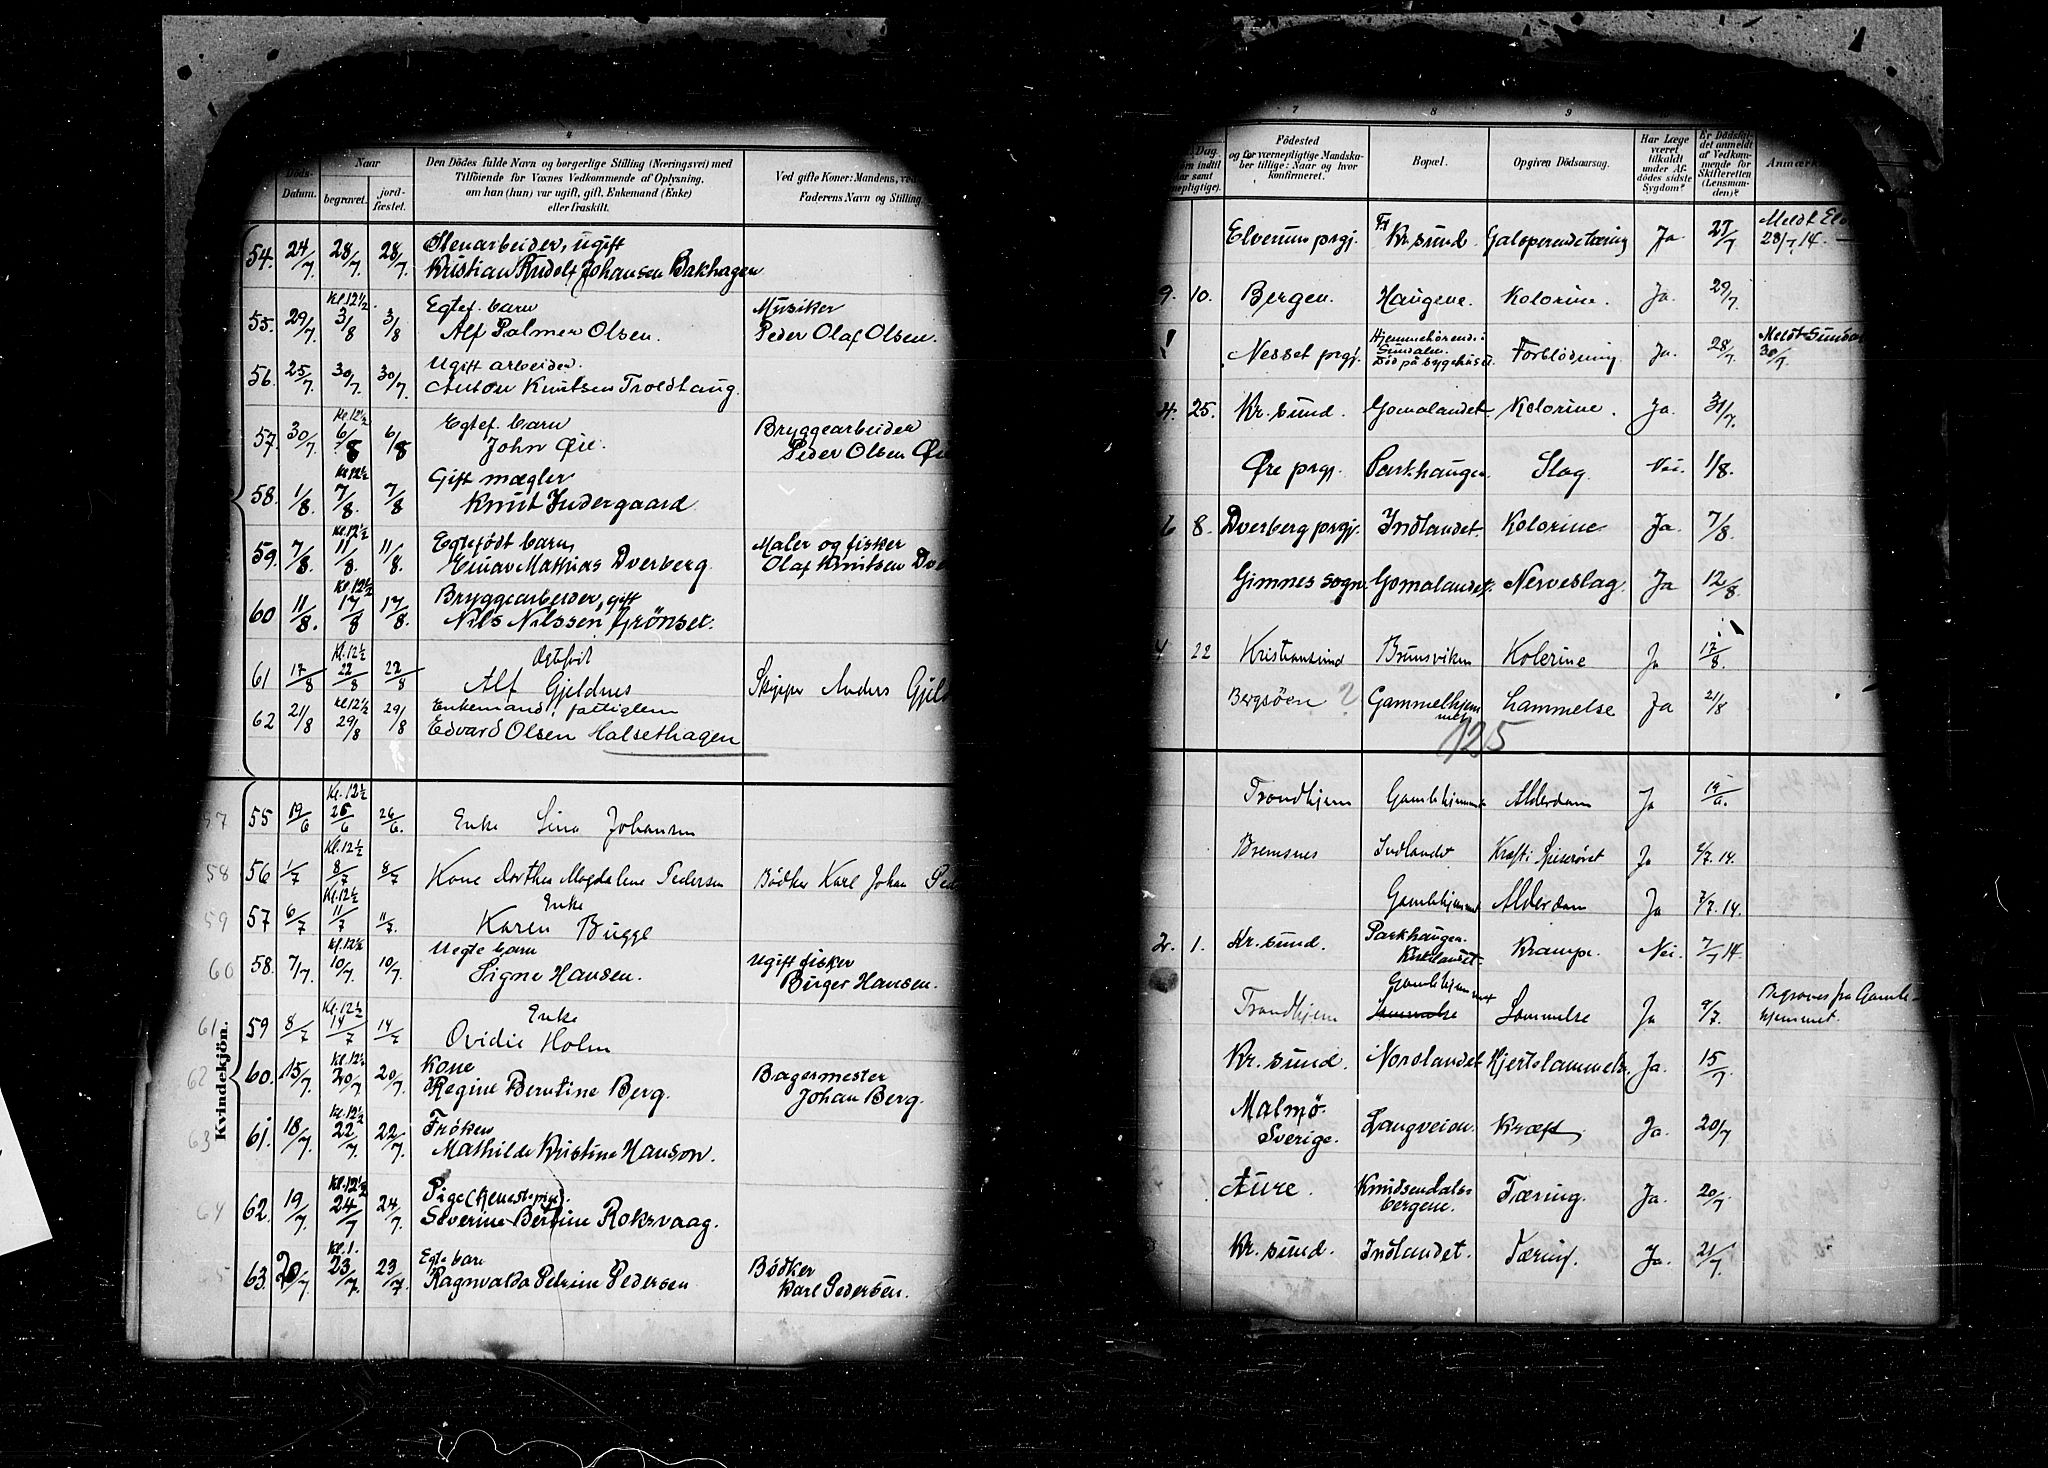 4
Döds-
Datum.
Naar
begravet.
jord-
fæstet.
Den Dödes fulde Navn og borgerlige Stilling (Næringsvei) med
Tilföiende for Voxnes Vedkommende af Oplysning,
om han (hun) var ugift, gift, Enkemand (Enke)
eller fraskilt.
Ved gifte Koner: Mandens, ved
Faderens Navn og Stilling.
54. 24/7 28/7 28/7 Stenarbeider, ugift
Kristian Rudolf Johansen Bakhagen
55. 29/7 Kl. 12½ 3/8 3/8 Egtef. barn Musiker
Alf Palmer Olsen. Peder Olaf Olsen.
56. 25/7 30/7 30/7 Ugift arbeider.
Anton Knutsen Troldhaug.
57. 30/7. Kl. 12½ 6/8 6/8 Egtef. barn Bryggearbeider
John Øie. Peder Olsen Øie
58. 1/8. Kl. 12½ 7/8. 7/8 Gift mægler
Knut Indergaard
59. 7/8. Kl. 12½ 11/8. 11/8. Egtefødt barn Maler og fisker
Einar Mathias Dverberg. Olaf Knutsen Dve
60 11/8. Kl. 12½ 17/8 17/8. Bryggearbeider, gift
Nils Nilssen Grönset.
61 17/8 Kl. 12½ 22/8 22/8 Egtefødt
Alf Gjeldnes Skipper Anders Gjel
62 21/8 Kl 12½ 29/8 29/8 Enkemand, fattiglem
Edvard Olsen Halsethagen
Kvindekjön.
57 55 19/6 Kl. 12½ 26/6 26/6. Enke Lina Johansen
58 56 1/7 Kl. 12½ 8/7 8/7 Kone Dorthea Magdalene Pedersen Bödker Karl Johan Ped
59 57 6/7 Kl. 12½ 11/7 11/7. Enke
Karen Bugge
60 58. 7/7. Kl. 12½ 10/7. 10/7. Uegte barn Ugift fisker
Signe Hansen. Birger Hansen.
61 59 8/7 Kl. 12½ 14/7 14/7 Enke
Ovidie Holm
62 60. 15/7. Kl. 12½ 20/7. 20/7. Kone Bagermester
Regine Berntine Berg. Johan Berg.
63 61. 18/7. Kl. 12½ 22/7. 22/7. Fröken
Mathilde Kristine Hanson.
64 62. 19/7. Kl. 12½ 24/7 24/7. Pige (tjenestepige).
Severine Bertine Roksvaag.
63. 20/7. Kl. 1. 23/7. 23/7. Egte barn Bödker
Ragnvalda Petrine Pedersen Karl Pedersen.
7 8 9
Födested
og for værnepligtige Mandska-
ber tillige: Naar og hvor
konfirmeret.
Bopæl.
Opgiven Dödsaarsag.
Har Læge
været
tilkaldt
under Af-
dödes sidste
Sygdom?
Er Dödsfal-
det anmeldt
af Vedkom-
mende for
Skifteretten
(Lensman-
den)?
Anmærk
Elverum prgj. Kr.sund. Galoperende tæring Ja 27/7 Meldt El
28/7 14.
9. 10. Bergen. Haugene. Kolerine. Ja. 29/7.
Nesset prgj. Hjemmehörende i
Sundalen.
Död på sygehuset. Forblödning. Ja. 28/7. Meldt Sundal
30/7.
4. 25. Kr. sund. Gomalandet. Kolerine. Ja. 31/7.
Øre prgj. Parkhaugen. Slag. Nei. 1/8.
6 8. Dverberg prgj. Indlandet. Kolerine. Ja. 7/8.
Gimnes sogn. Gomalandet. Nerveslag. Ja 12/8.
4 22 Kristiansund Brunsviken Kolerine Ja 17/8.
Bergsöen ? Gammelhjem
met Lammelse Ja 21/8
125
Trondhjem Gamlehjemmet Alderdom Ja 19/6.
Bremsnes Indlandet Kræft i Spiserøret Ja 2/7. 14.
Gamlehjemmet Alderdom Ja 7/7. 14.
2. 1. Kr. sund. Parkhaugen.
Kirkelandet. Krampe. Nei. 7/7 14.
Trondhjem Gamlehjemmet
Lammelse Lammelse Ja 9/7. Begraves fra Gamle-
hjemmet.
Kr. sund. Nordlandet Hjertelammelse. Ja. 15/7.
Malmö.
Sverige. Langveien. Kræft. Ja. 20/7
Aure. Knudsendals-
bergene. Tæring. Ja. 20/7
Kr. sund. Indlandet. Tæring. Ja. 21/7.